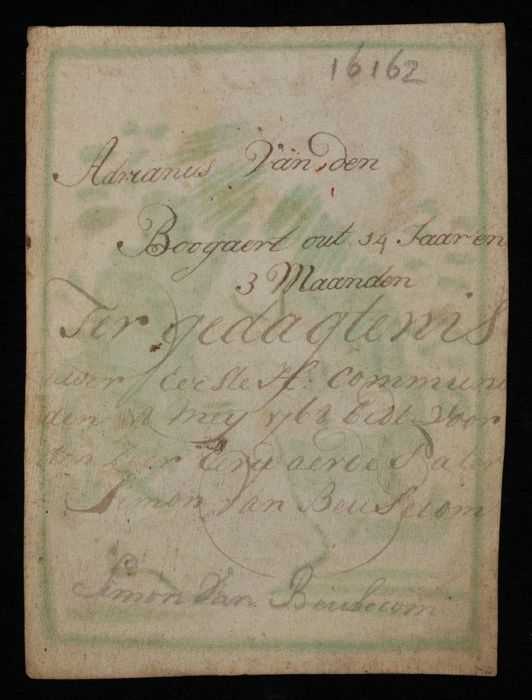 16162
Adrianus Van den
Boogaert out 14 Jaar en
3 Maanden
Ter gedagtenis
uwer Eerste H: Communi
den 18 mey 1768 Bidt Voor
den Zeer Eerwaerde Pater
Simon Van Beusecom
Simon Van Beusecom